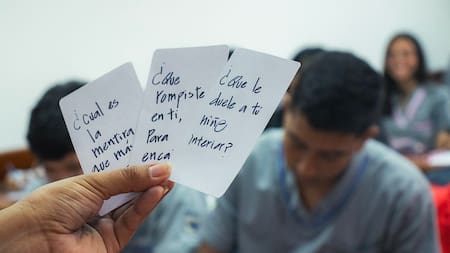 ¿Cual es
la
mentira
que más
¿Que
rompiste
en ti,
Para
enca
¿Que le
duele a tu
niño
interior?